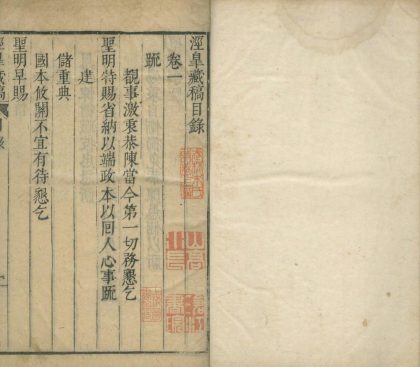 涇臯藏稿目錄
卷一
疏
覩事激衷恭陳當今第一切務懇乞
聖明特賜省納以端政本以囘人心事疏
建
儲重典
國本攸關不宜有待懇乞
聖明早賜
涇臯藏稿